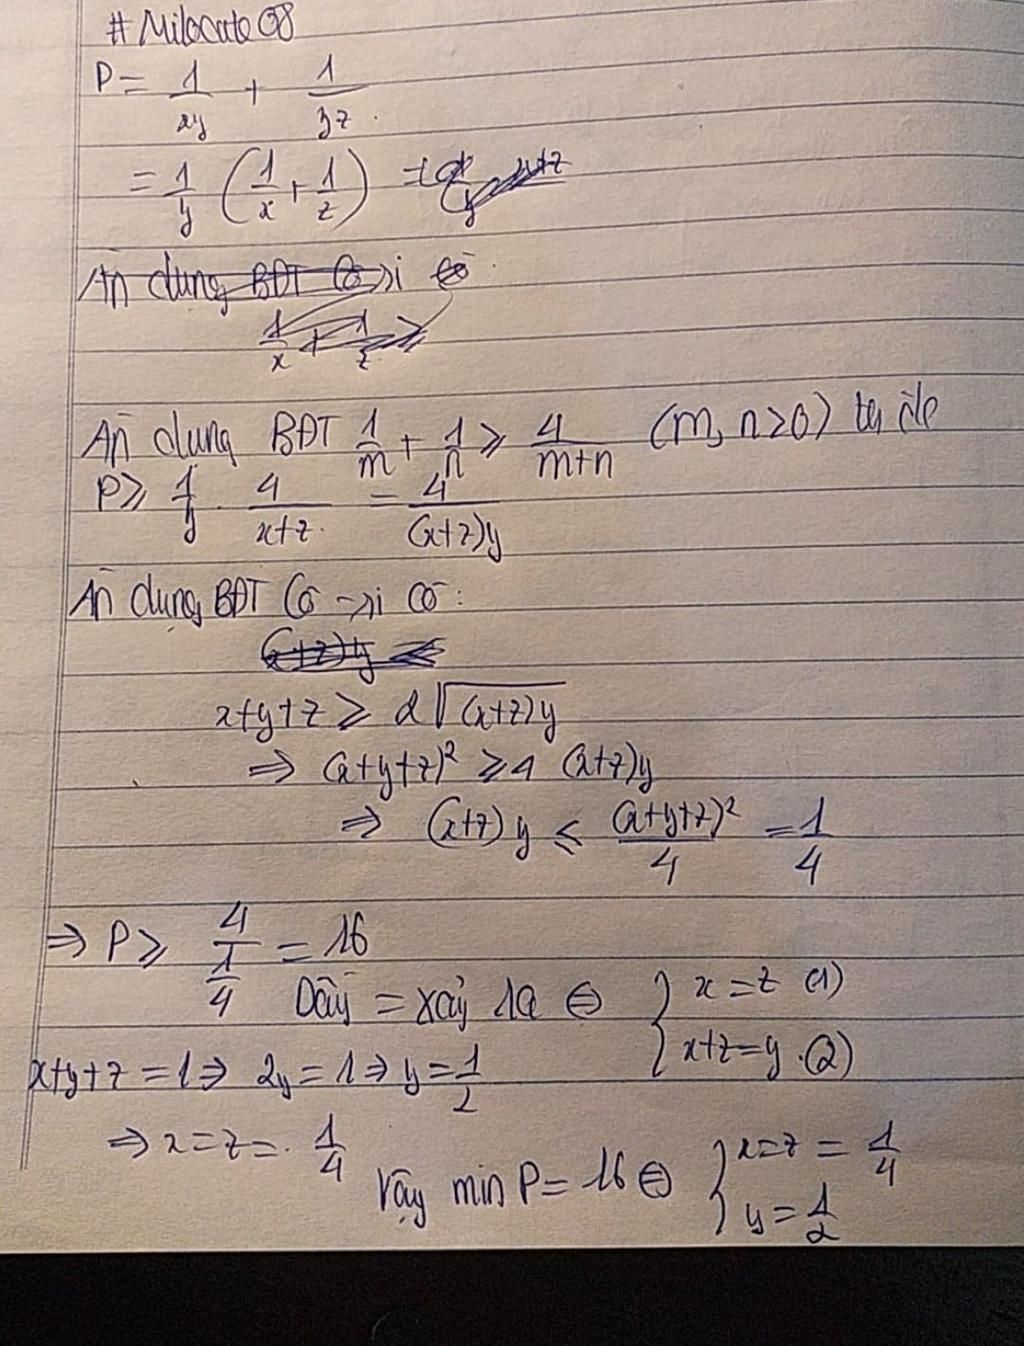 # Milocute08
P = 1/xy + 1/yz.
= 1/y (1/x + 1/z)
Áp dụng BĐT Cô-si có:
1/x + 1/z ≥
Áp dụng BĐT 1/m + 1/n ≥ 4/(m+n) (m, n>0) ta
P ≥ 1/y . 4/(x+z) = 4/((x+z)y)
Áp dụng BĐT Cô-si có:
(x+z)y ≤
x+y+z ≥ 2√((x+z)y)
⇒ (x+y+z)² ≥ 4 (x+z)y
⇒ (x+z)y ≤ (x+y+z)²/4 = 1/4
⇒ P ≥ 4/(1/4) = 16
Dấu = xảy ra ⇔ { x = z (1)
x+z = y (2)
x+y+z = 1 ⇒ 2y = 1 ⇒ y = 1/2
⇒ x = z = 1/4
Vậy min P = 16 ⇔ { x = z = 1/4
y = 1/2